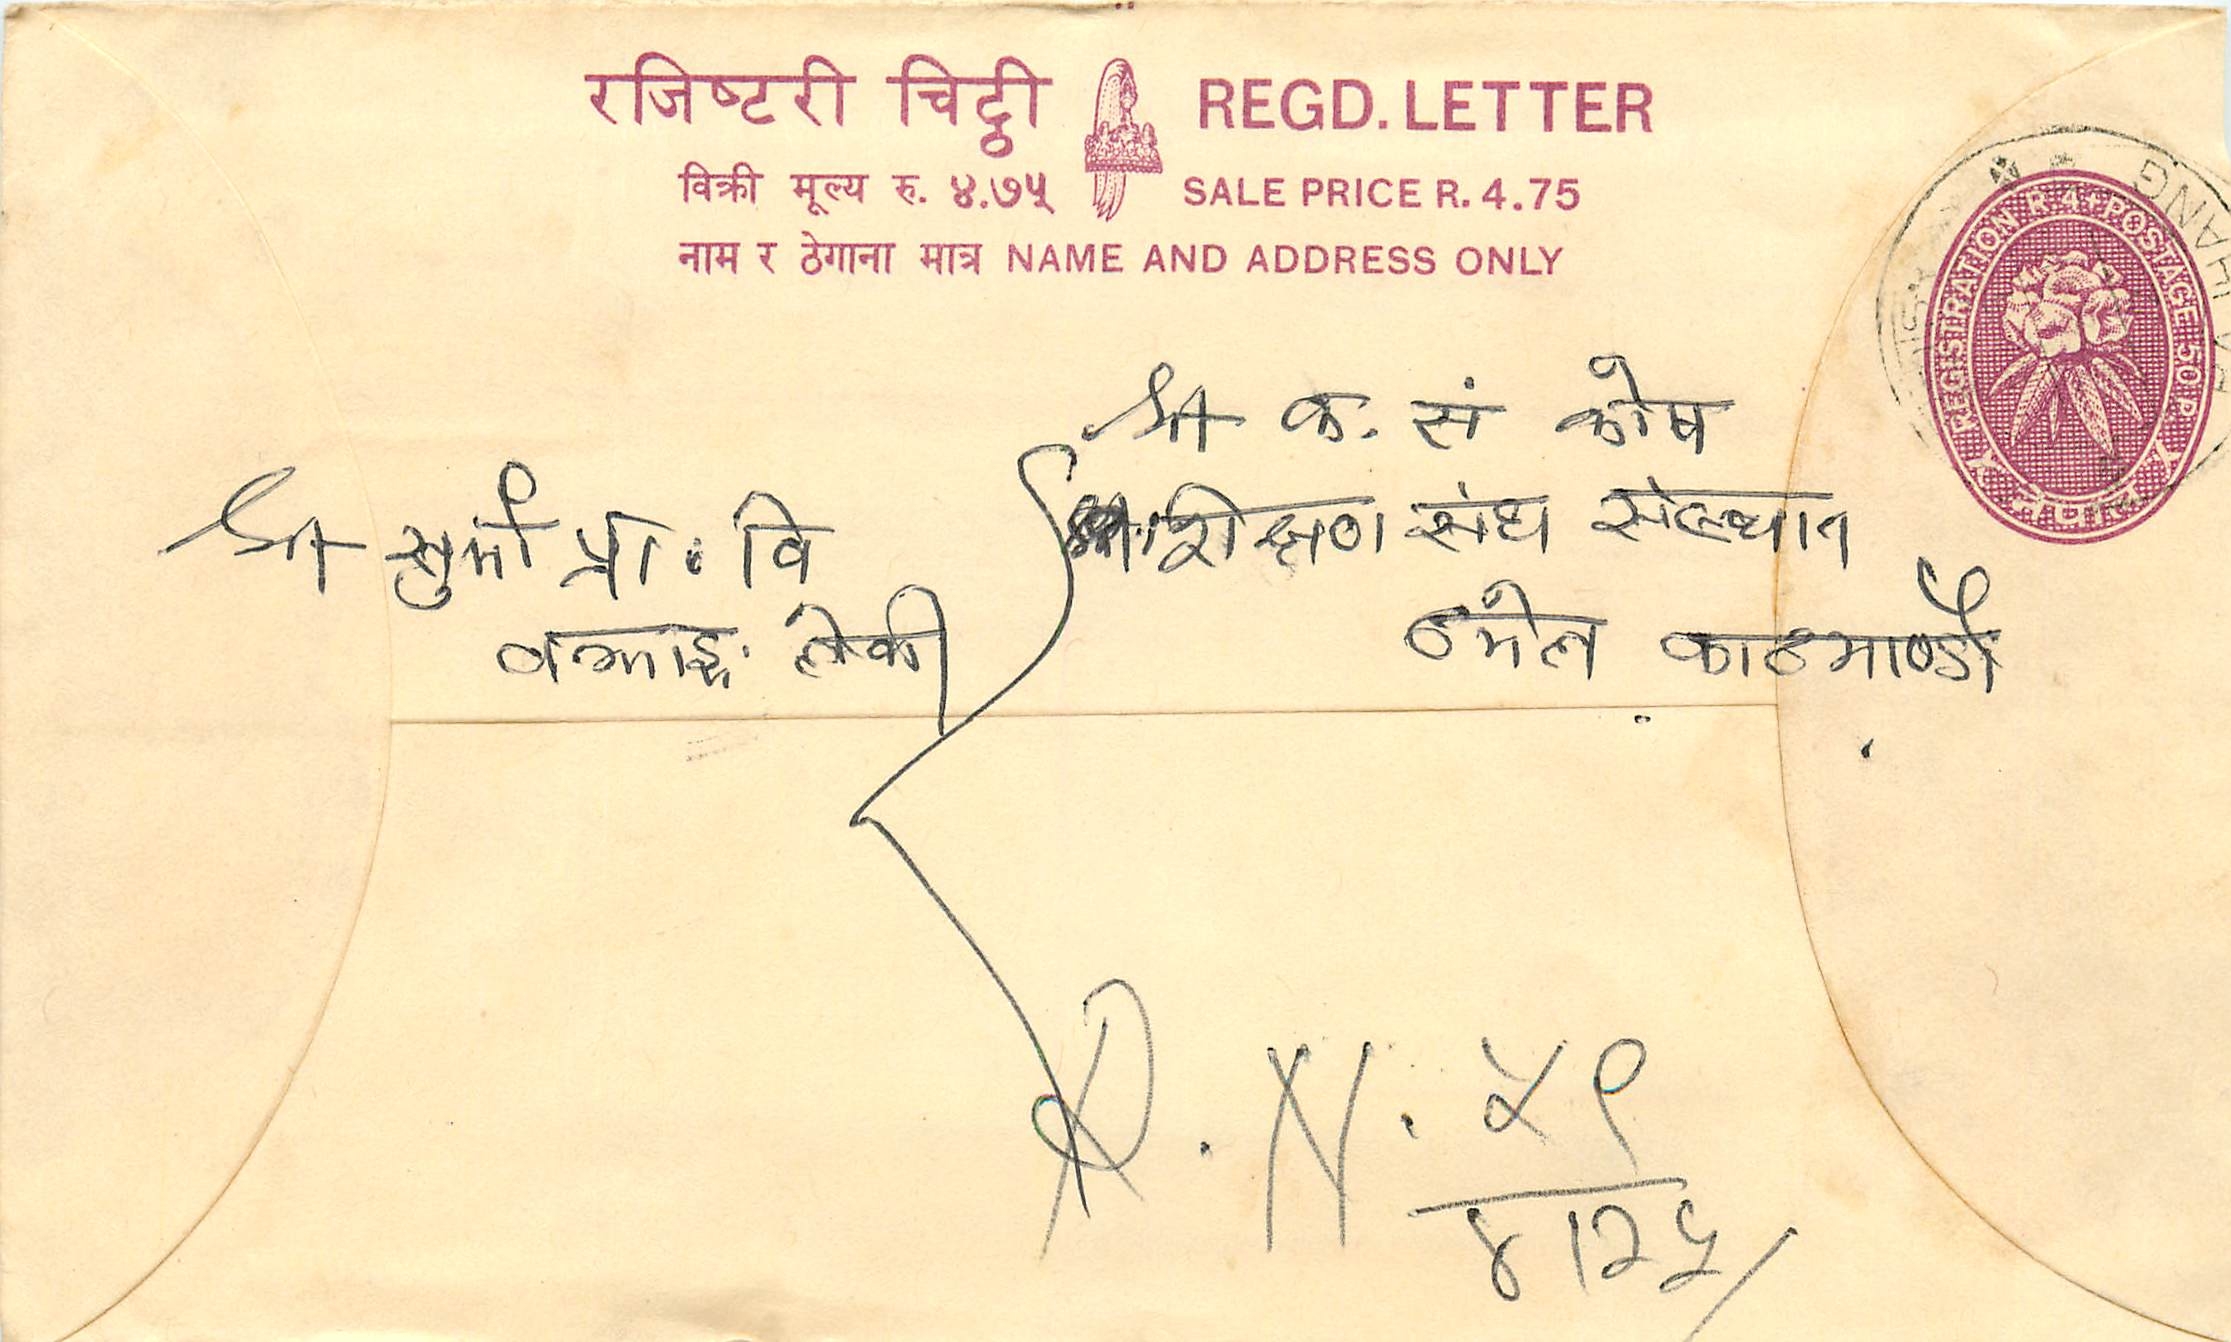 रजिष्टरी चिट्ठी REGD. LETTER
विक्री मूल्य रु. ४.७५ SALE PRICE R. 4.75
नाम र ठेगाना मात्र NAME AND ADDRESS ONLY
REGISTRATION R 4 + POSTAGE 50 P.
नेपाल
BAJHANG
श्री क. सं कोष
संघ संस्थान
ठमेल काठमाण्डौ
श्री सुर्मा प्रा. वि
बझाङ
R. N. ५९
४।२५